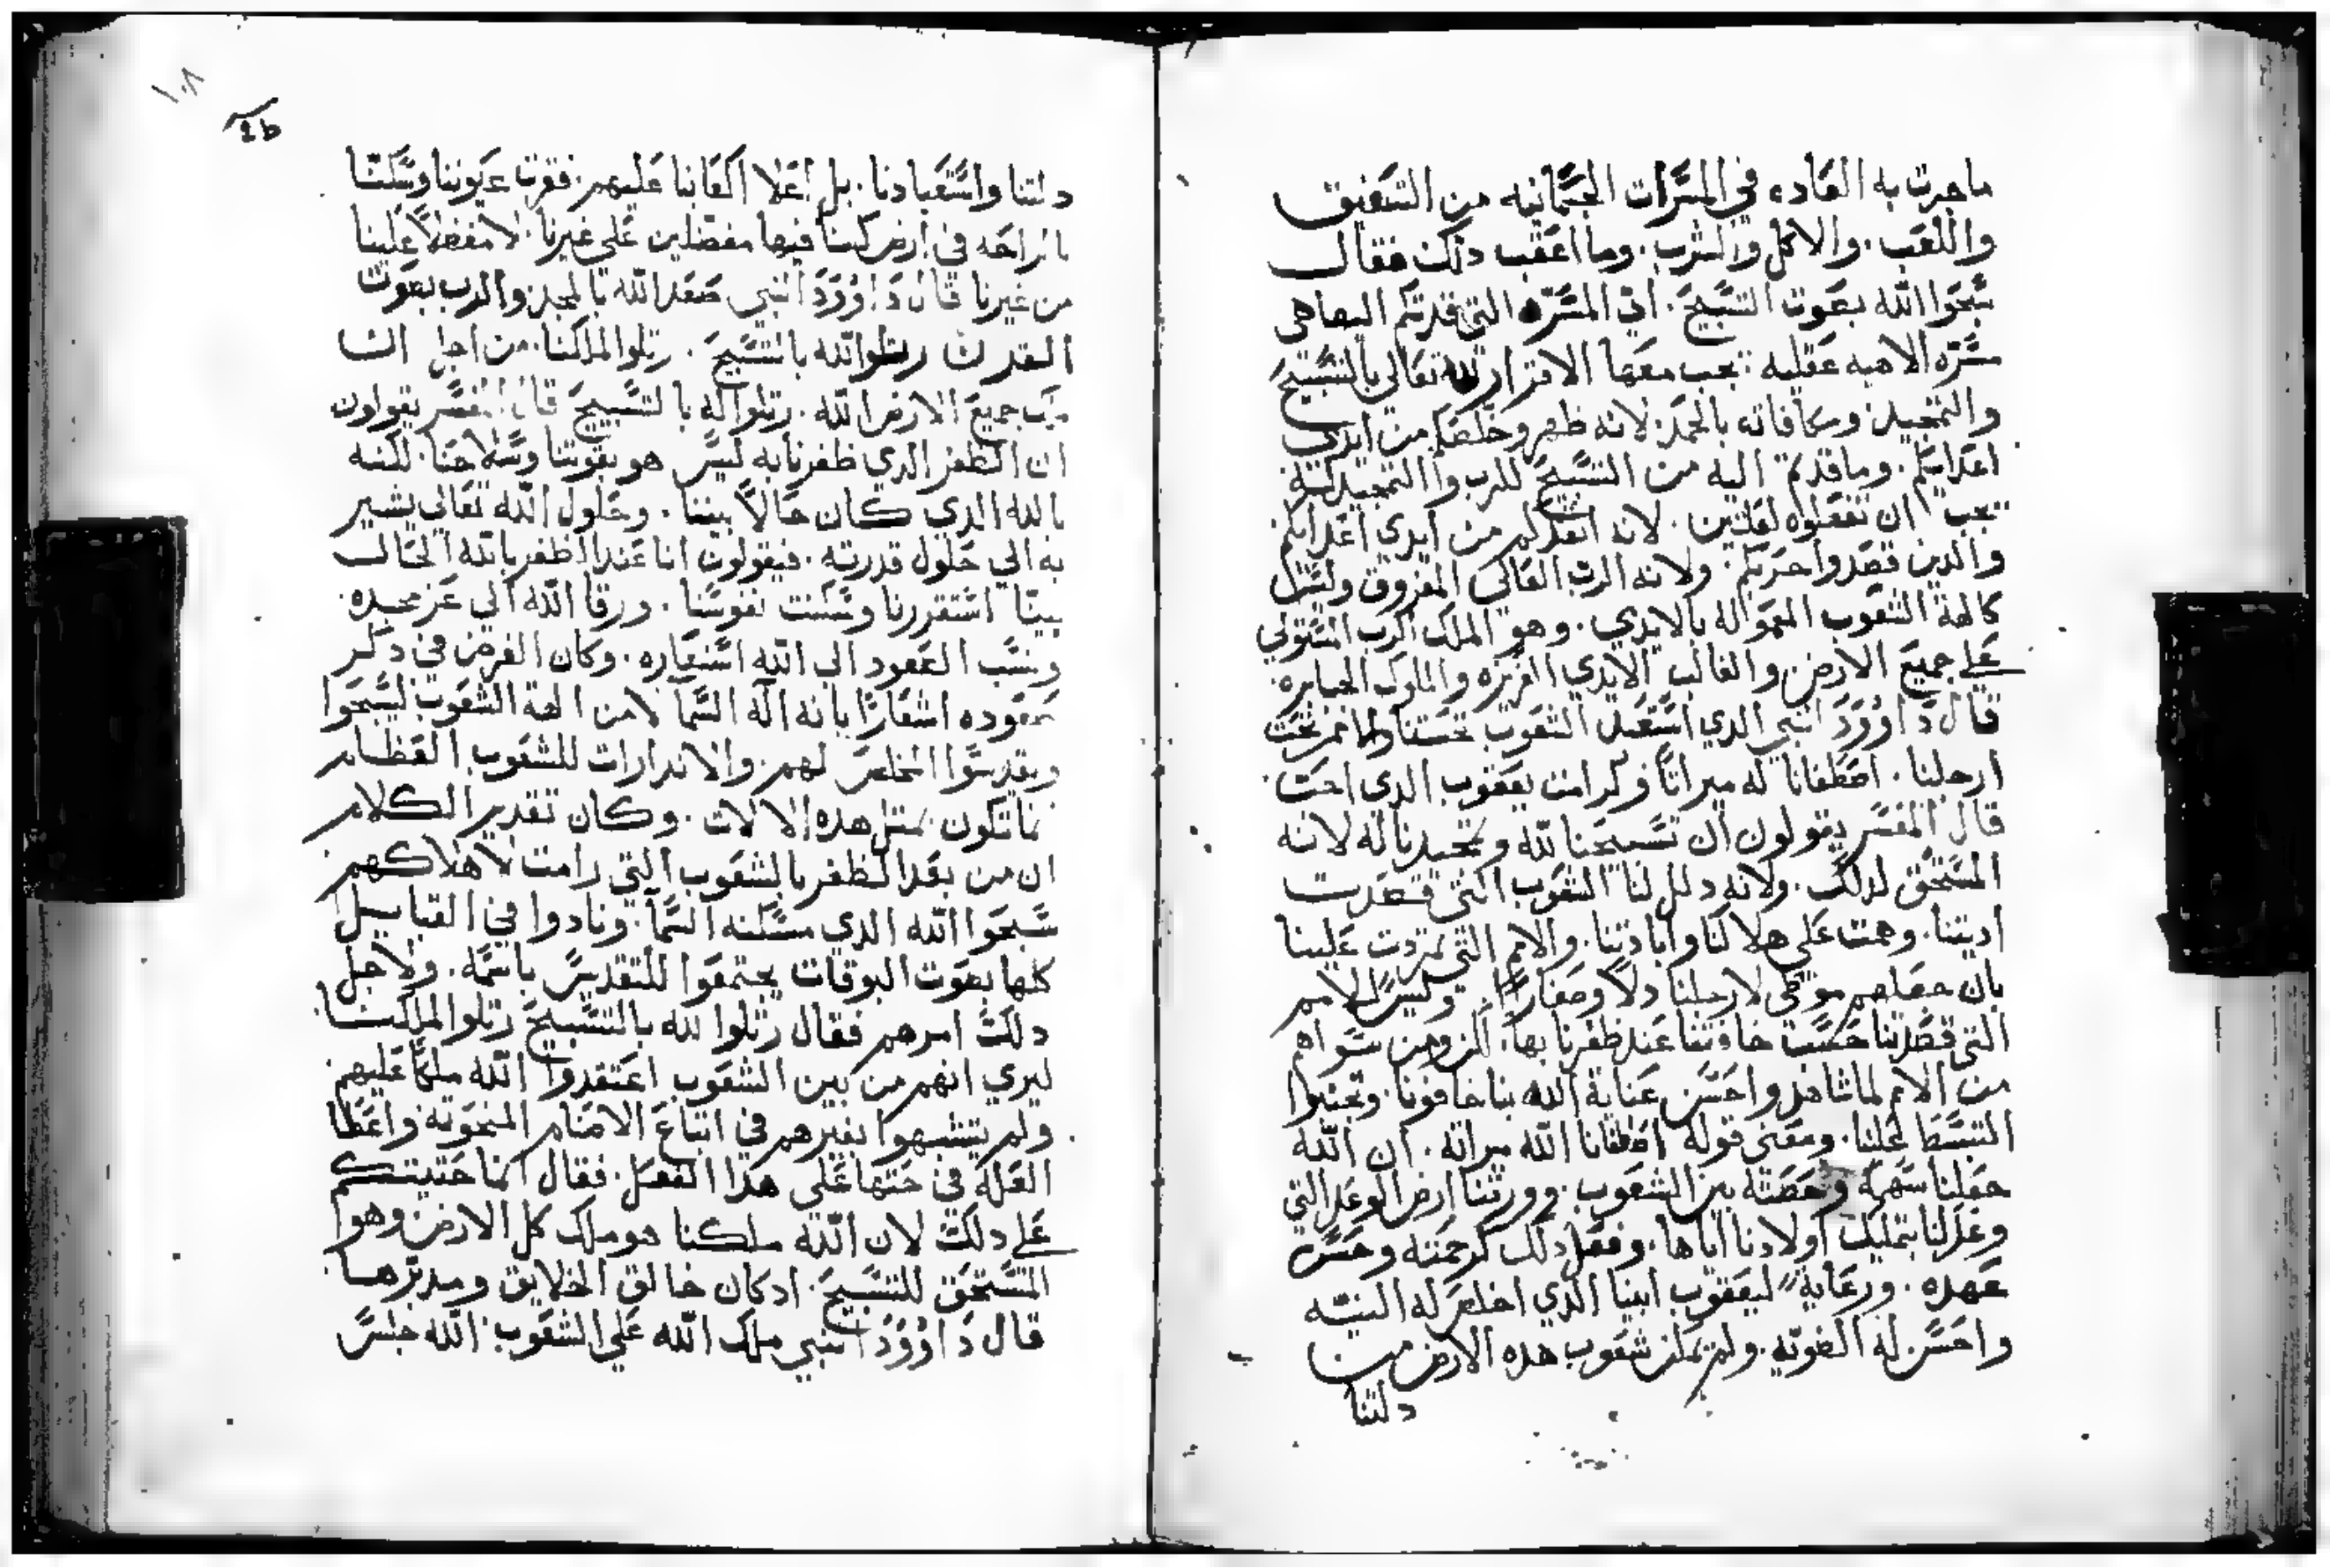 ما جرت به العاده في المسرات الجسمانيه من التصفيق
واللعب. والاكل والشرب. وما اعقب ذلك فقال
سبحوا الله بصوت التسبيح. اي المسره التي قدتكم اليها هي
مسره الاهيه عقليه يجب معها الاقرار لله تعالى بالتسبيح
والتمجيد ومكافاته بالحمد لانه ظهر وخلصكم من ايدي
اعدايكم. وما قدم اليه من التسبيح للرب والتمجيد
يجب ان تفعلوه لعلتين. لانه انقدكم من ايدي اعدايكم
والدين قصدوا حربكم. ولانه الرب العالي المفزوق وليس
كالهة الشعوب المعموله بالايدي. وهو الملك الرب المستولي
على جميع الارض والغالب الايدي العزيزه والملوك الجبابره
قال داوود النبي الدي استعبد الشعوب تحتنا والامم تحت
ارجلنا. اصطفانا له ميراتا وكرامت يعقوب الدي احب
قال المفسر يقولون ان تسبيحنا لله وتمجيدنا له لانه
المستحق لدلك. ولانه دلل لنا الشعوب التي قصدت
اديتنا. وهمت على هلاكنا وابادتنا. والامم التي تمردت علينا
بان جعلهم موطى لارجلنا دلا وصغارا. وليس الامم
التي قصدتنا حسب خافتنا عند ظفرنا بها. لكن ومن سواهم
من الامم لما شاهدوا حسن عناية الله بنا خافونا. وتجنبوا
التبسط علينا. ومعنى قوله اصطفانا الله ميراته. ان الله
جعلنا سهمه وحصته بين الشعوب. وورتنا ارض الوعد التي
وعدنا بتمليك اولادنا اياها. وفعل دلك كرحمته وحسن
عهده. ورعاية ليعقوب ابينا الدي اخلص له النيه
واحسن له الطويه. ولم تمكن شعوب هده الارض من
دلتنا
١٠٨
دلتنا واستعبادنا. بل اعلا اكعابنا عليهم. فقرت عيوننا وسكنا
بالراحه في ارض كنا فيها مفضلين على غيرنا. لا مفضلا علينا
من غيرنا قال داوود النبي صعد الله بالمجد والرب بصوت
القرن رتلوا لله بالتسبيح. رتلوا لملكنا. من اجل ان
رب جميع الارض الله. رتلوا له بالتسبيح قال المفسر يقولون
ان الظفر الدي ظفرنا به ليس هو بقوتنا وسلاحنا. لكنه
بالله الدي كان حالا بيننا. وحلول الله تعالى يشير
به الى حلول قدرته. فيقولون انا عند الظفر بالله الحال
بيننا استقررنا وسكنت نفوسنا. ورقا الله الى عز مجده
ونسب الصعود الى الله استعاره. وكان الغرض في دكر
صعوده اشعارا بانه اله السما لا من الهة الشعوب ليسبحوا
ويقدسوا المخلص لهم. والاندارات للشعوب العظام
انما تكون بمتل هده الالات. وكان تقدير الكلام
ان من بعد الظفر بالشعوب التي رامت لاهلاكهم
سبحوا الله الدي مسكنه السما. ونادوا في القبايل
كلها بصوت البوقات يجتمعوا للتقديس باسمه. ولاجل
دلك امرهم فقال رتلوا لله بالتسبيح رتلوا لملكنا.
ليري انهم من بين الشعوب اعتقدوا الله ملكا عليهم
ولم يتشبهوا بغيرهم في اتباع الاصنام المنحوته واعطا
العله في حتها على هدا الفعل. فقال انما حتيتكم
على دلك لان الله ملكنا هو ملك كل الارض وهو
المستحق للتسبيح. ادكان خالق الخلايق ومدبرها
قال داوود النبي ملك الله على الشعوب. الله جلس